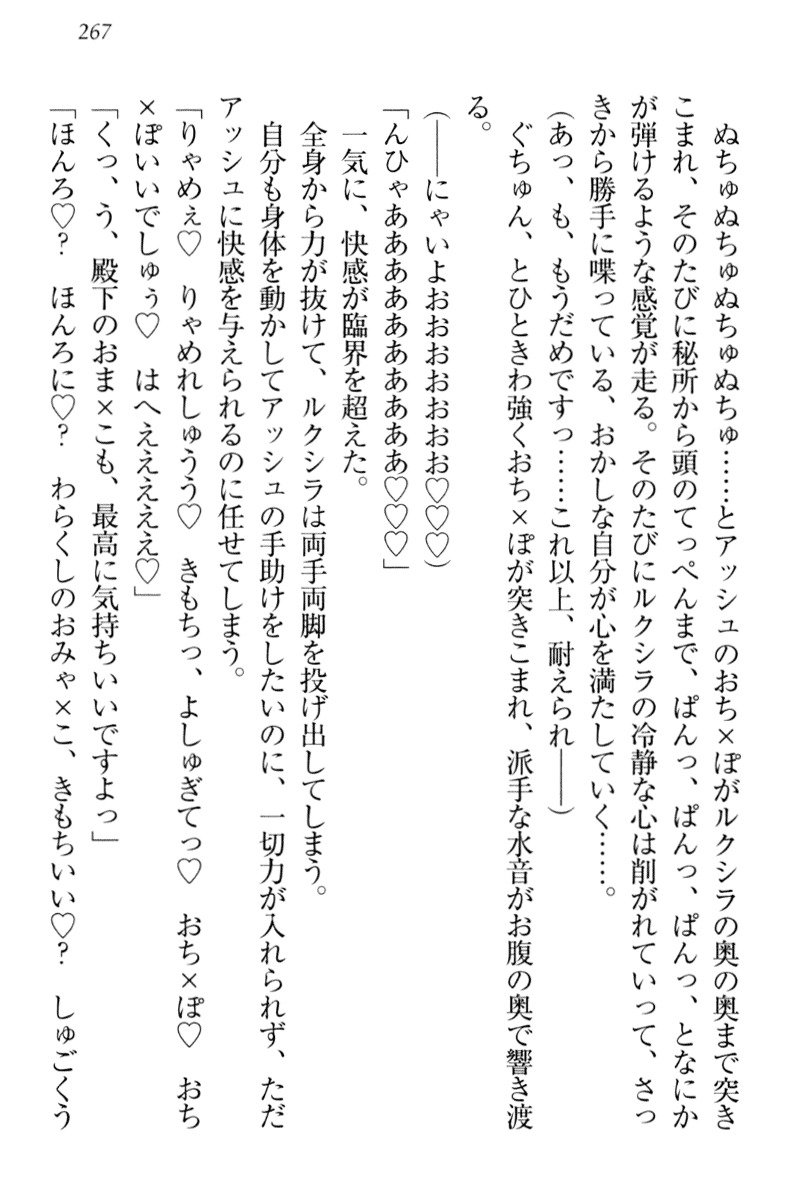 267
ぬちゅぬちゅぬちゅぬちゅ……とアッシュのおち×ぽがルクシラの奥の奥まで突き
こまれ、そのたびに秘所から頭のてっぺんまで、ぱんっ、ぱんっ、ぱんっ、となにか
が弾けるような感覚が走る。そのたびにルクシラの冷静な心は削がれていって、さっ
きから勝手に喋っている、おかしな自分が心を満たしていく……。
(あっ、も、もうだめですっ……これ以上、耐えられ――)
ぐちゅん、とひときわ強くおち×ぽが突きこまれ、派手な水音がお腹の奥で響き渡
る。
(――にゃいよおおおおおおおお♡♡♡)
「んひゃあああああああああああ♡♡♡」
一気に、快感が臨界を超えた。
全身から力が抜けて、ルクシラは両手両脚を投げ出してしまう。
自分も身体を動かしてアッシュの手助けをしたいのに、一切力が入れられず、ただ
アッシュに快感を与えられるのに任せてしまう。
「りゃめぇ♡　りゃめれしゅうう♡　きもちっ、よしゅぎてっ♡　おち×ぽ♡　おち
×ぽいいでしゅぅ♡　はへええええええ♡」
「くっ、う、殿下のおま×こも、最高に気持ちいいですよっ」
「ほんろ♡?　ほんろに♡?　わらくしのおみゃ×こ、きもちいい♡?　しゅごくう